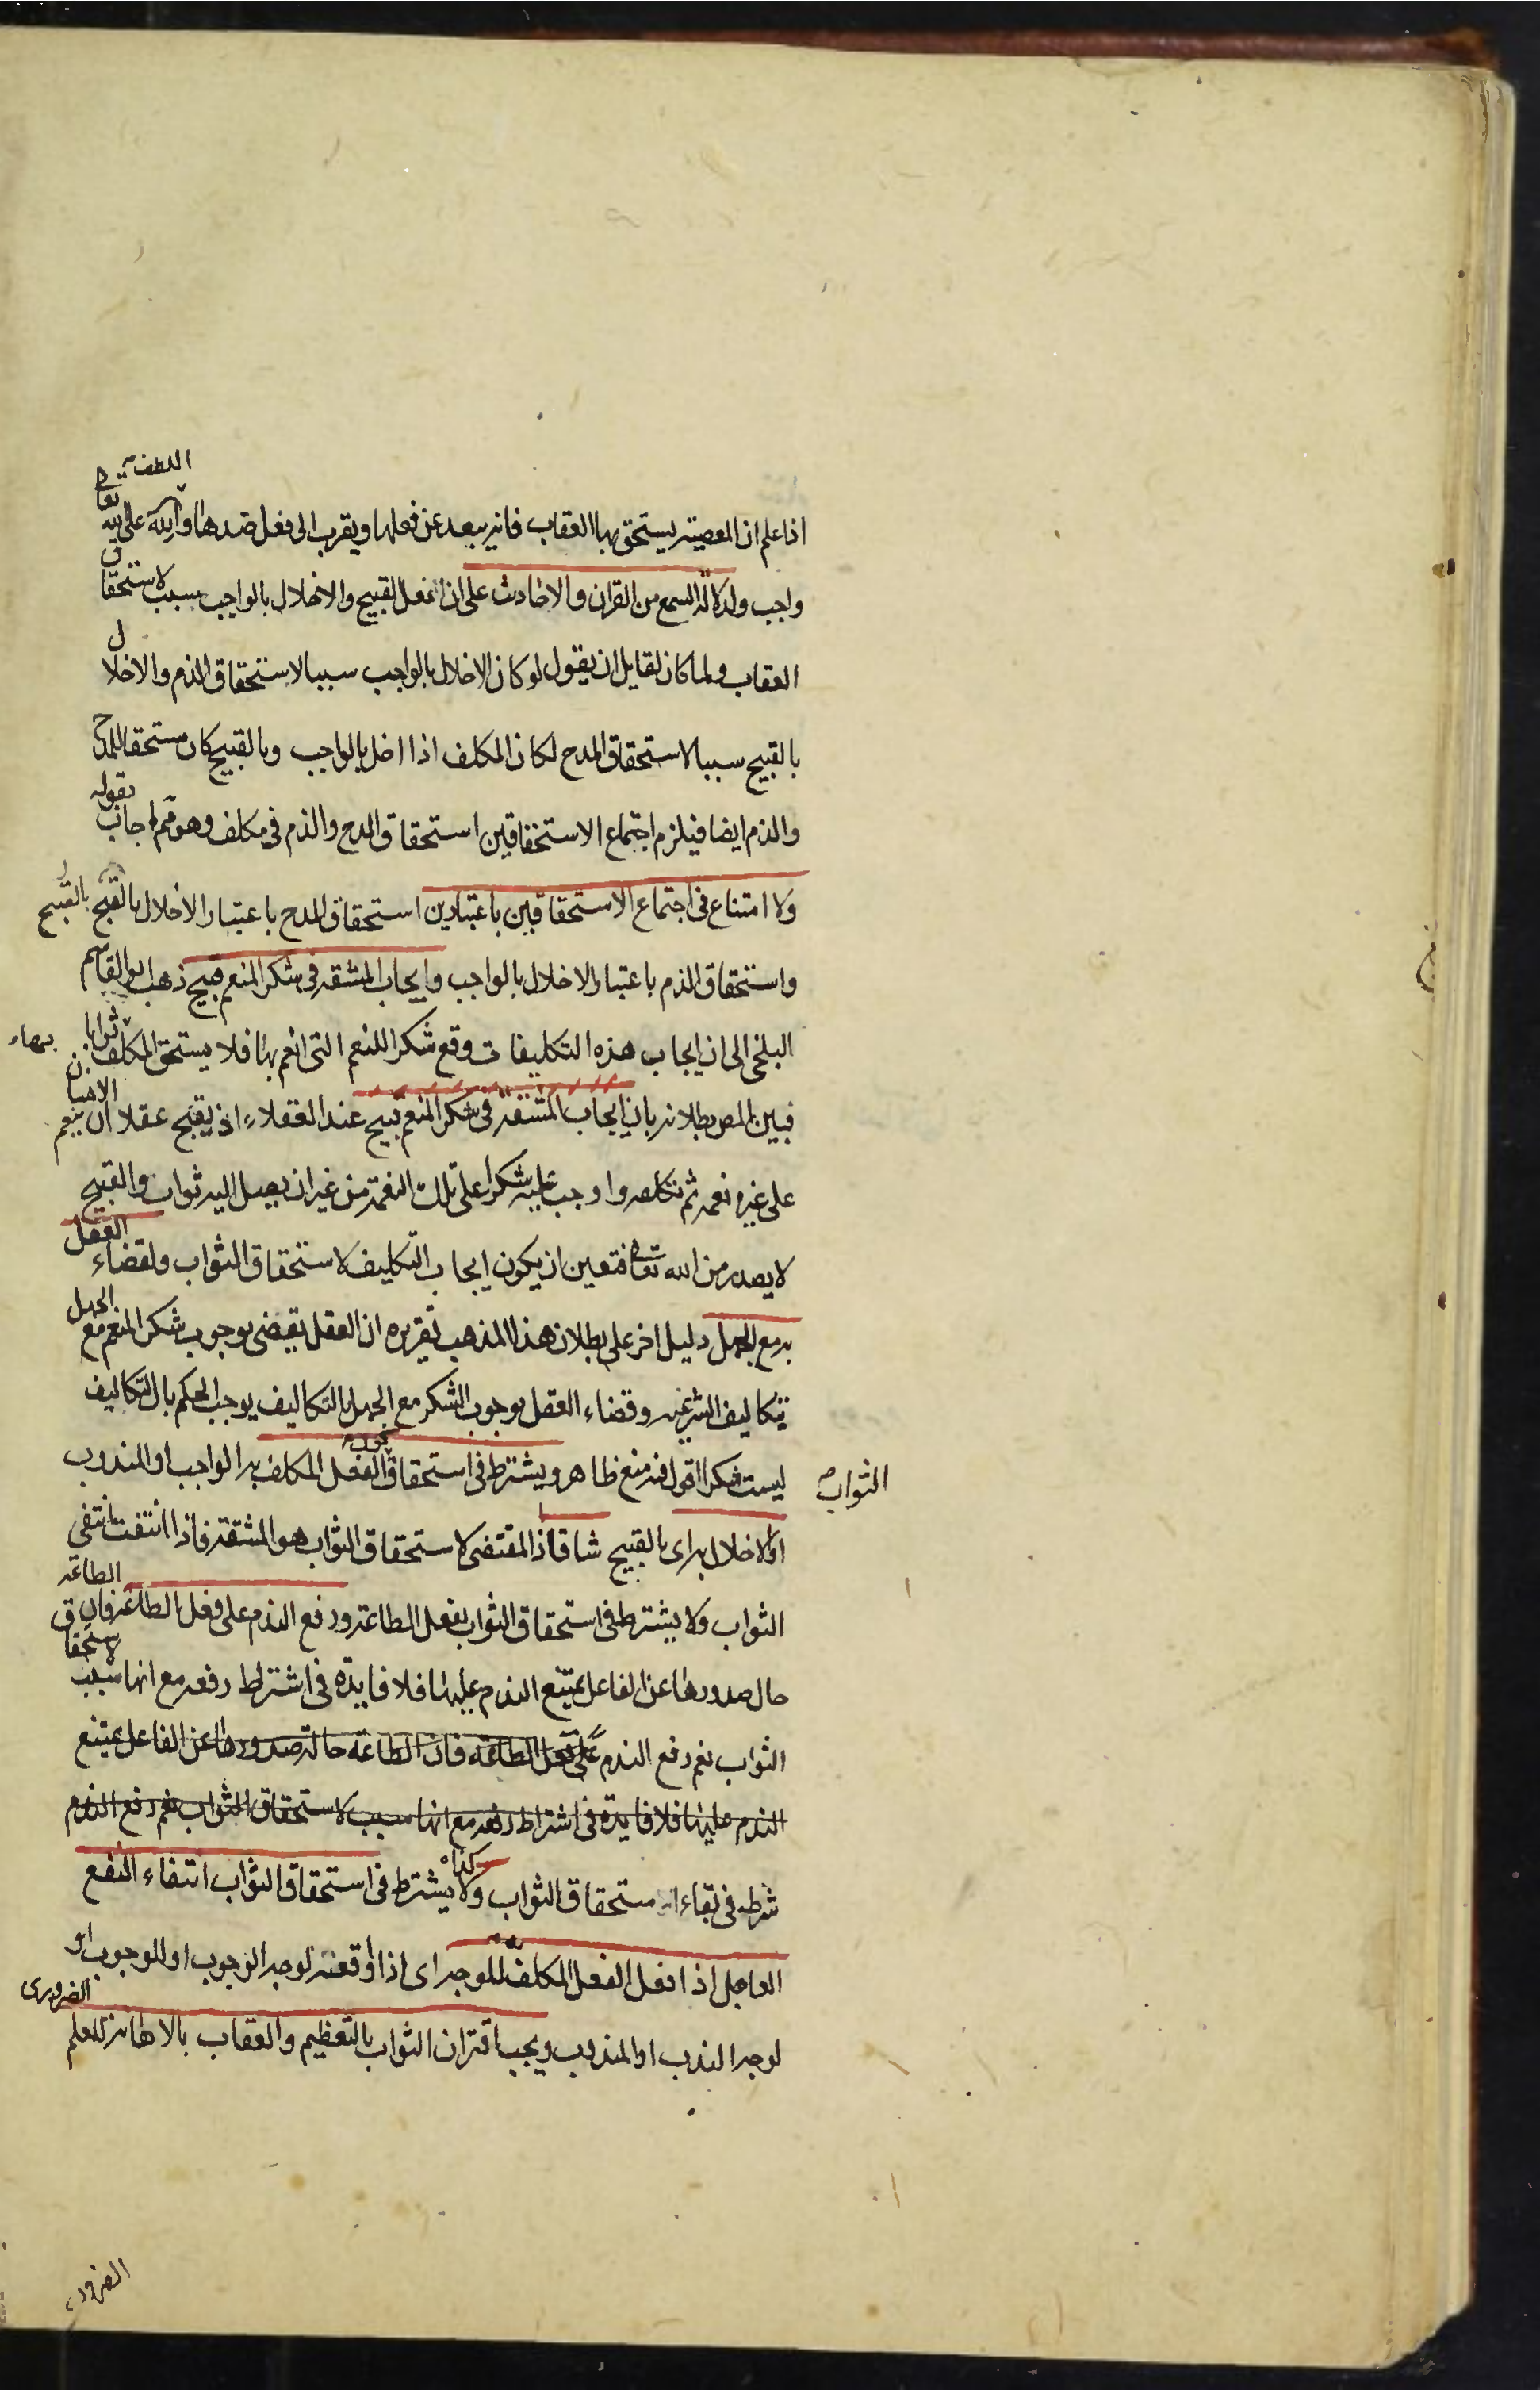 اللطف
اذا علم ان المعصية يستحق بها العقاب فانه يبعد عن فعلها ويقرب الى فعل ضدها و على الله تعالى
واجب ولدلالة السمع من القران والاحاديث على ان فعل القبيح والاخلال بالواجب سبب لاستحقاق
العقاب ولما كان لقايل ان يقول لو كان الاخلال بالواجب سببا لاستحقاق الذم والاخلال
بالقبيح سببا لاستحقاق المدح لكان المكلف اذا اخل بالواجب وبالقبيح كان مستحقا للمدح
والذم ايضا فيلزم اجتماع الاستحقاقين استحقاق المدح والذم في مكلف وهو مم اجاب بقوله
ولا امتناع في اجتماع الاستحقاقين باعتبارين استحقاق المدح باعتبار الاخلال بالقبيح بالقبيح
واستحقاق الذم باعتبار الاخلال بالواجب وايجاب المشقه في شكر المنعم قبيح ذهب ابو القاسم
البلخي الى ان ايجاب هذه التكليفات وقع شكرا للنعم التي انعم بها فلا يستحق المكلف ثوابا بها
فبين المص بطلانه بان ايجاب المشقة في شكر المنعم قبيح عند العقلاء اذ يقبح عقلا ان ينعم الانسان
على غيره نعمه ثم تكلفه واوجب عليه شكرا على تلك النعمة من غير ان يصل اليه ثواب والقبيح
لا يصدر من الله تعالى فتعين ان يكون ايجاب التكليف لاستحقاق الثواب ولقضاء العقل
به مع الجهل دليل اخر على بطلان هذا المذهب تقريره ان العقل يقضي بوجوب شكر المنعم مع الجهل
بتكاليف الشرعيه وقضاء العقل بوجوب الشكر مع الجهل بالتكاليف يوجب الحكم بان التكاليف
ليست شكرا اقول فيه منع ظاهر ويشترط في استحقاق الفعل المكلف به الواجب او المندوب
الثواب
او الاخلال به اى بالقبيح شاقا اذ المقتضى لاستحقاق الثواب هو المشقة فاذا انتفت انتفى
الثواب ولا يشترط في استحقاق الثواب بفعل الطاعة ورفع الندم على فعل الطاعة فان الطاعة
حال صدورها عن الفاعل يمتنع الندم عليها فلا فايدة في اشتراط رفعه مع انها سبب لاستحقاق
الثواب نعم رفع الندم على فعل الطاعة فان الطاعة حالة صدورها عن الفاعل يمتنع
الندم عليها فلا فايدة في اشتراط رفعه مع انها سبب لاستحقاق الثواب نعم رفع الندم
شرط في بقاء استحقاق الثواب وكذا لا يشترط في استحقاق الثواب انتفاء النفع
العاجل اذا فعل الفعل المكلف للوجه اى اذا اوقعته لوجه الوجوب او للوجوب او
لوجه الندب او المندوب ويجب اقتران الثواب بالتعظيم والعقاب بالاهانة للعلم الضروري
الضرور